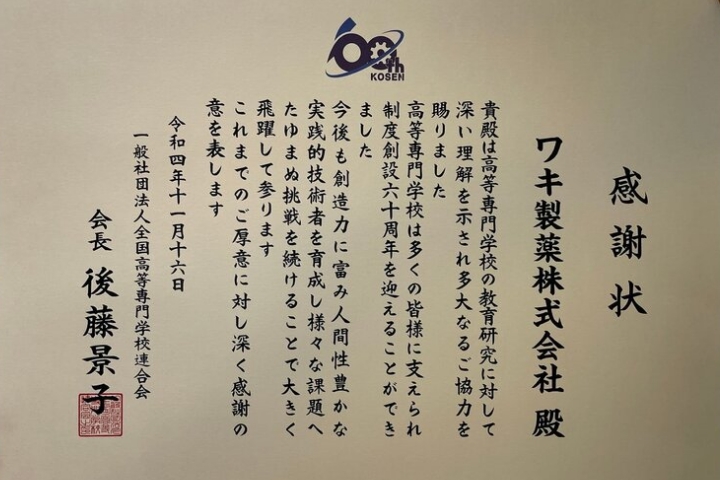 60th
KOSEN
感謝状
ワキ製薬株式会社 殿
貴殿は高等専門学校の教育研究に対して
深い理解を示され多大なるご協力を
賜りました
高等専門学校は多くの皆様に支えられ
制度創設六十周年を迎えることができ
ました
今後も創造力に富み人間性豊かな
実践的技術者を育成し様々な課題へ
たゆまぬ挑戦を続けることで大きく
飛躍して参ります
これまでのご厚意に対し深く感謝の
意を表します
令和四年十一月十六日
一般社団法人全国高等専門学校連合会
会長 後藤景子